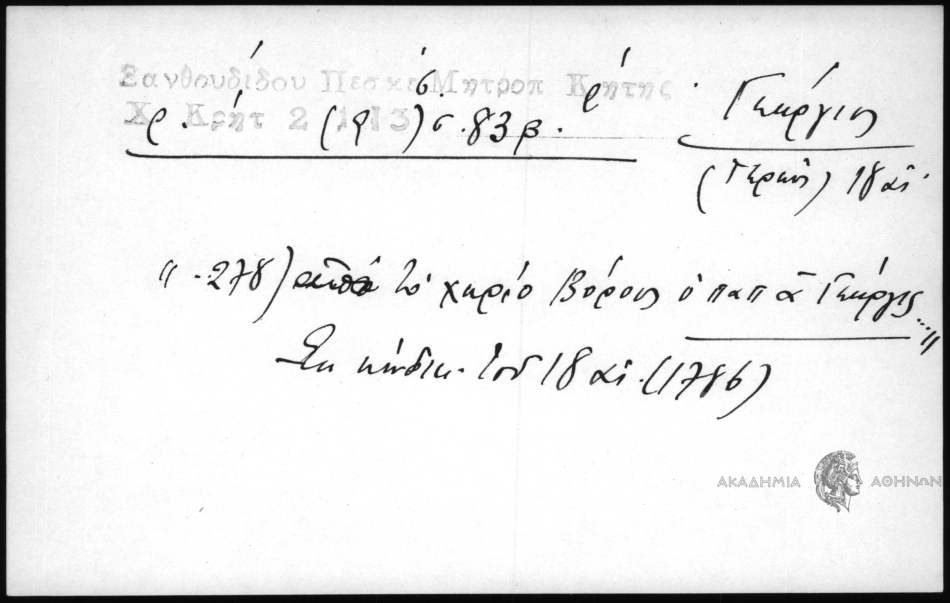 Ξανθουδίδου Πεσκέσ. Μητροπ Κρήτης
Χ. Κρήτ 2 1913 σ. 83 β.
Γεώργιος
18 αἰ.
"-278) ἀπὸ τὸ χωρίο Βόρους ὁ παπᾶ Γεώργις..."
Ἐκ κώδικ. τοῦ 18 αἰ. (1786)
ΑΚΑΔΗΜΙΑ ΑΘΗΝΩΝ